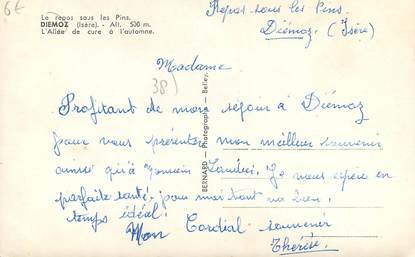 6€
Le repos sous les Pins.
DIEMOZ (Isère). - Alt. 500 m.
L'Allée de cure à l'automne.
Repos sous les Pins
Diémoz. (Isère)
38)
Madame
Profitant de mon sejour à Diémoz
pour vous présenter mon meilleur souvenir
ainsi qu'à Je vous espère en
parfaite santé, pour moi tout va bien.
temps idéal.
Mon Cordial souvenir
Thérèse.
BERNARD - Photographe - Belley.